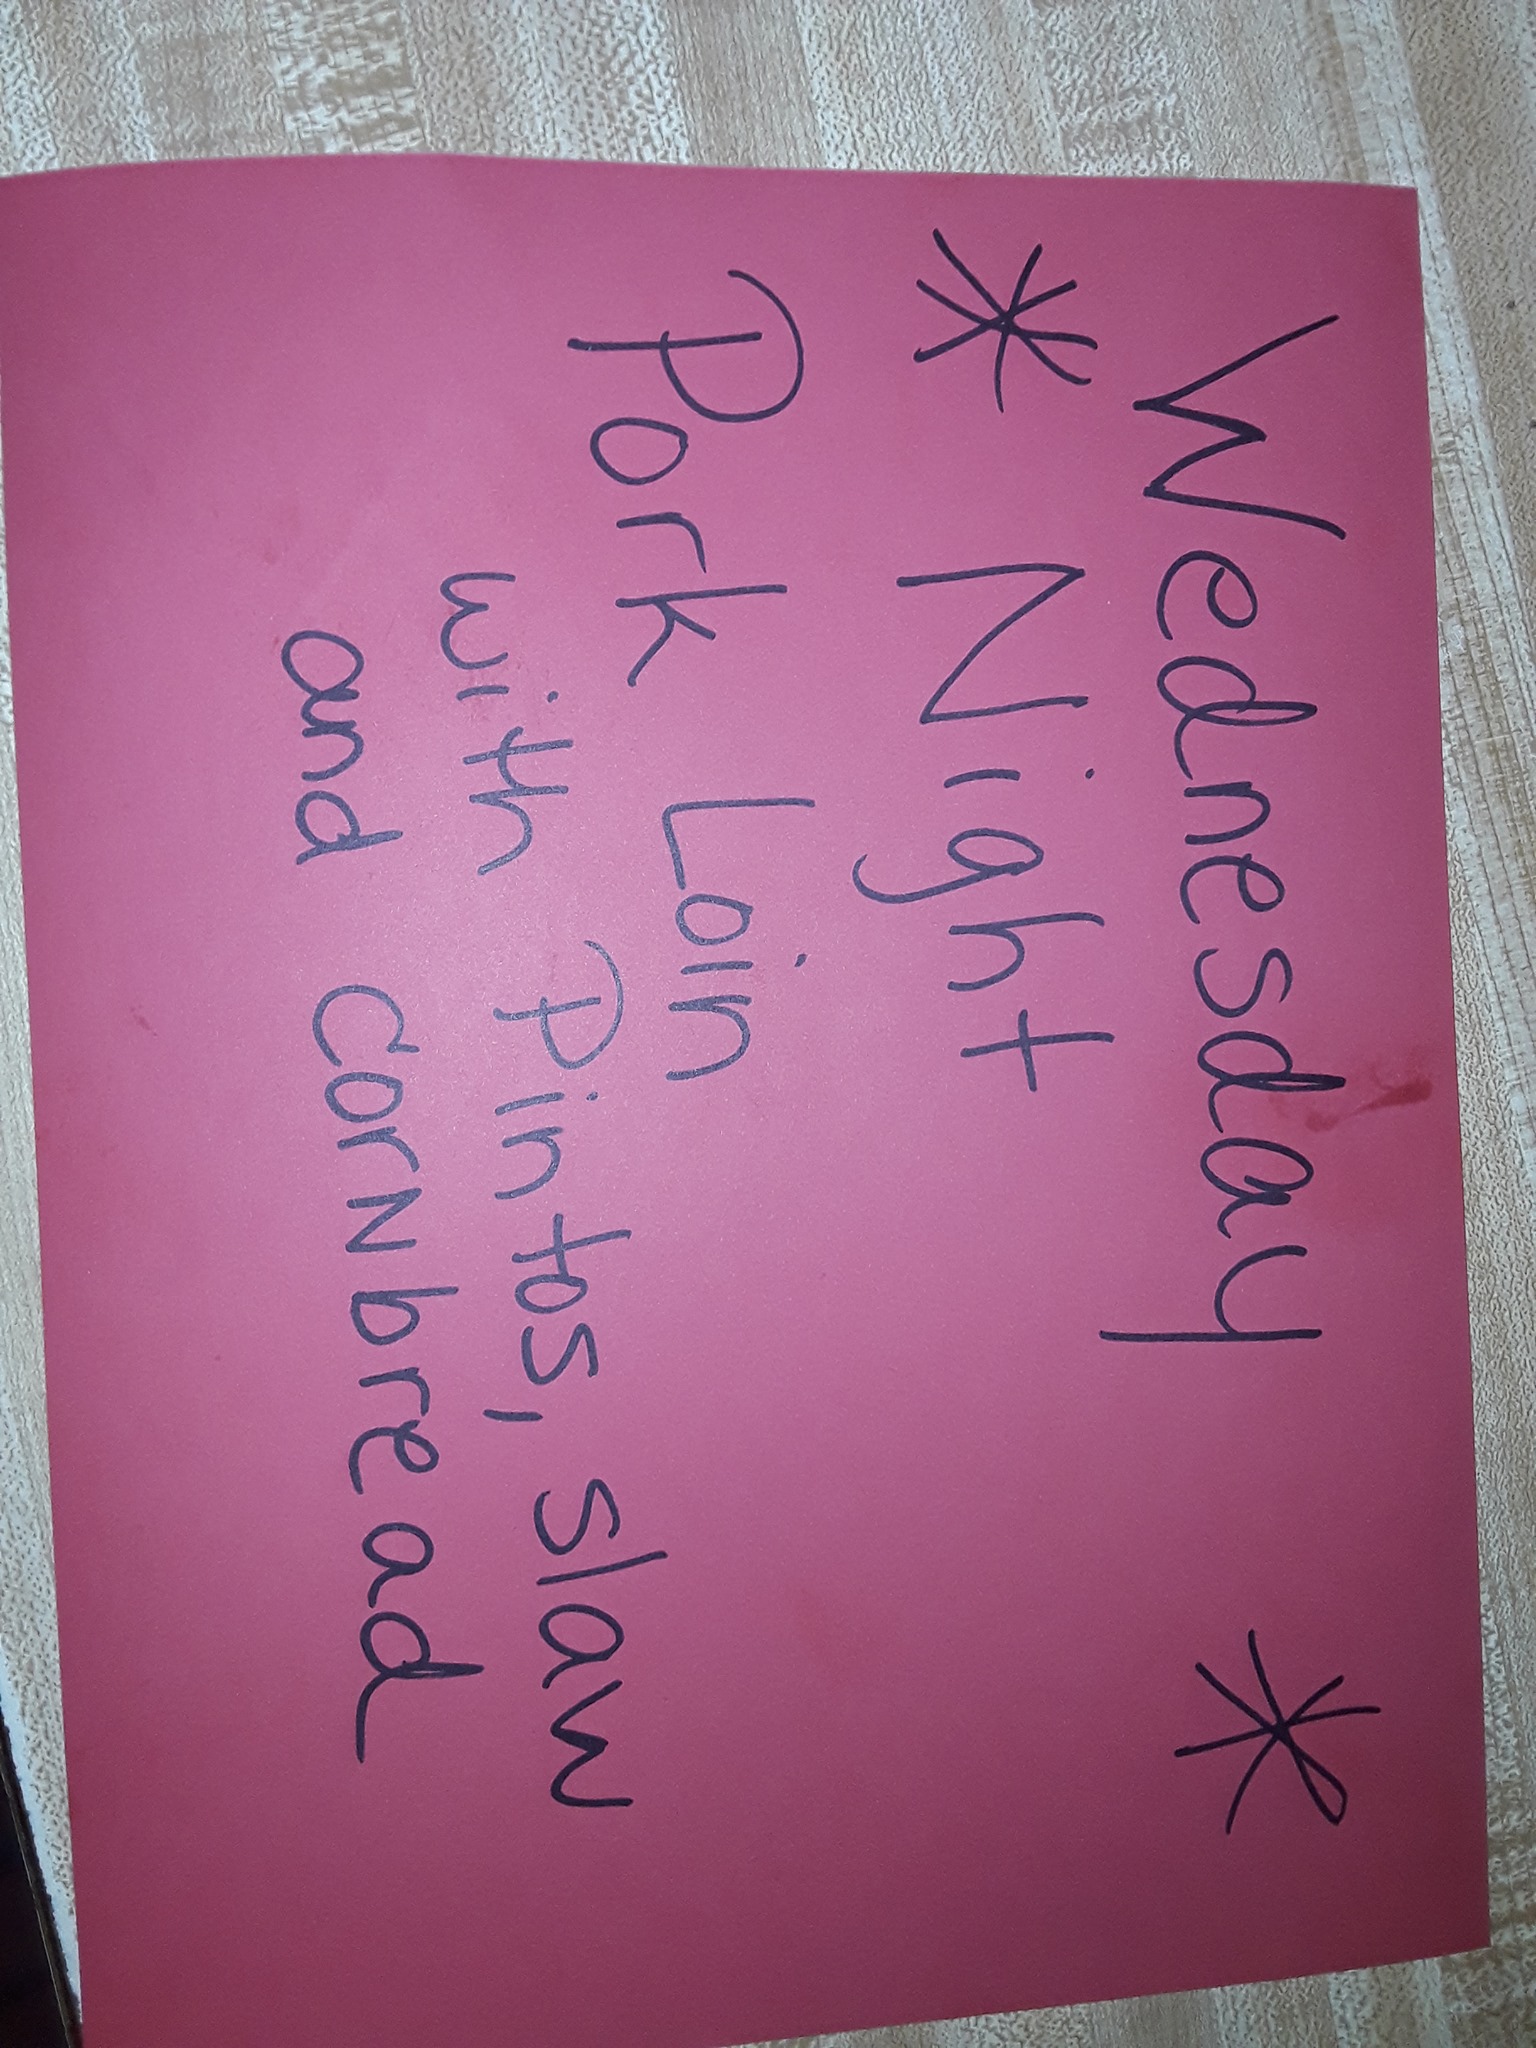 Wednesday
* Night *
Pork Loin
with Pintos, slaw
and CorNbread